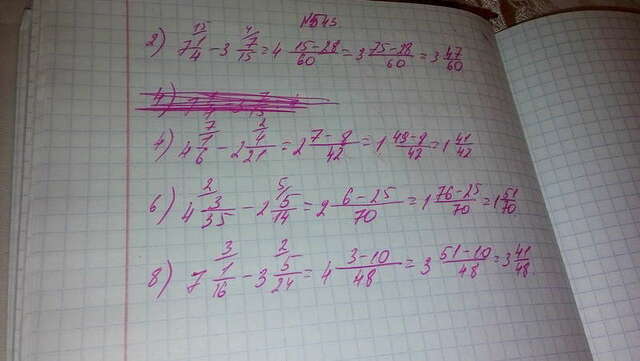 2) 7 1/4 - 3 7/15 = 4 15-28/60 = 3 75-28/60 = 3 47/60
4) 4 1/6 - 2 4/21 = 2 7-8/42 = 1 49-8/42 = 1 41/42
6) 4 3/35 - 2 5/14 = 2 6-25/70 = 1 76-25/70 = 1 51/70
8) 7 1/16 - 3 5/24 = 4 3-10/48 = 3 51-10/48 = 3 41/48